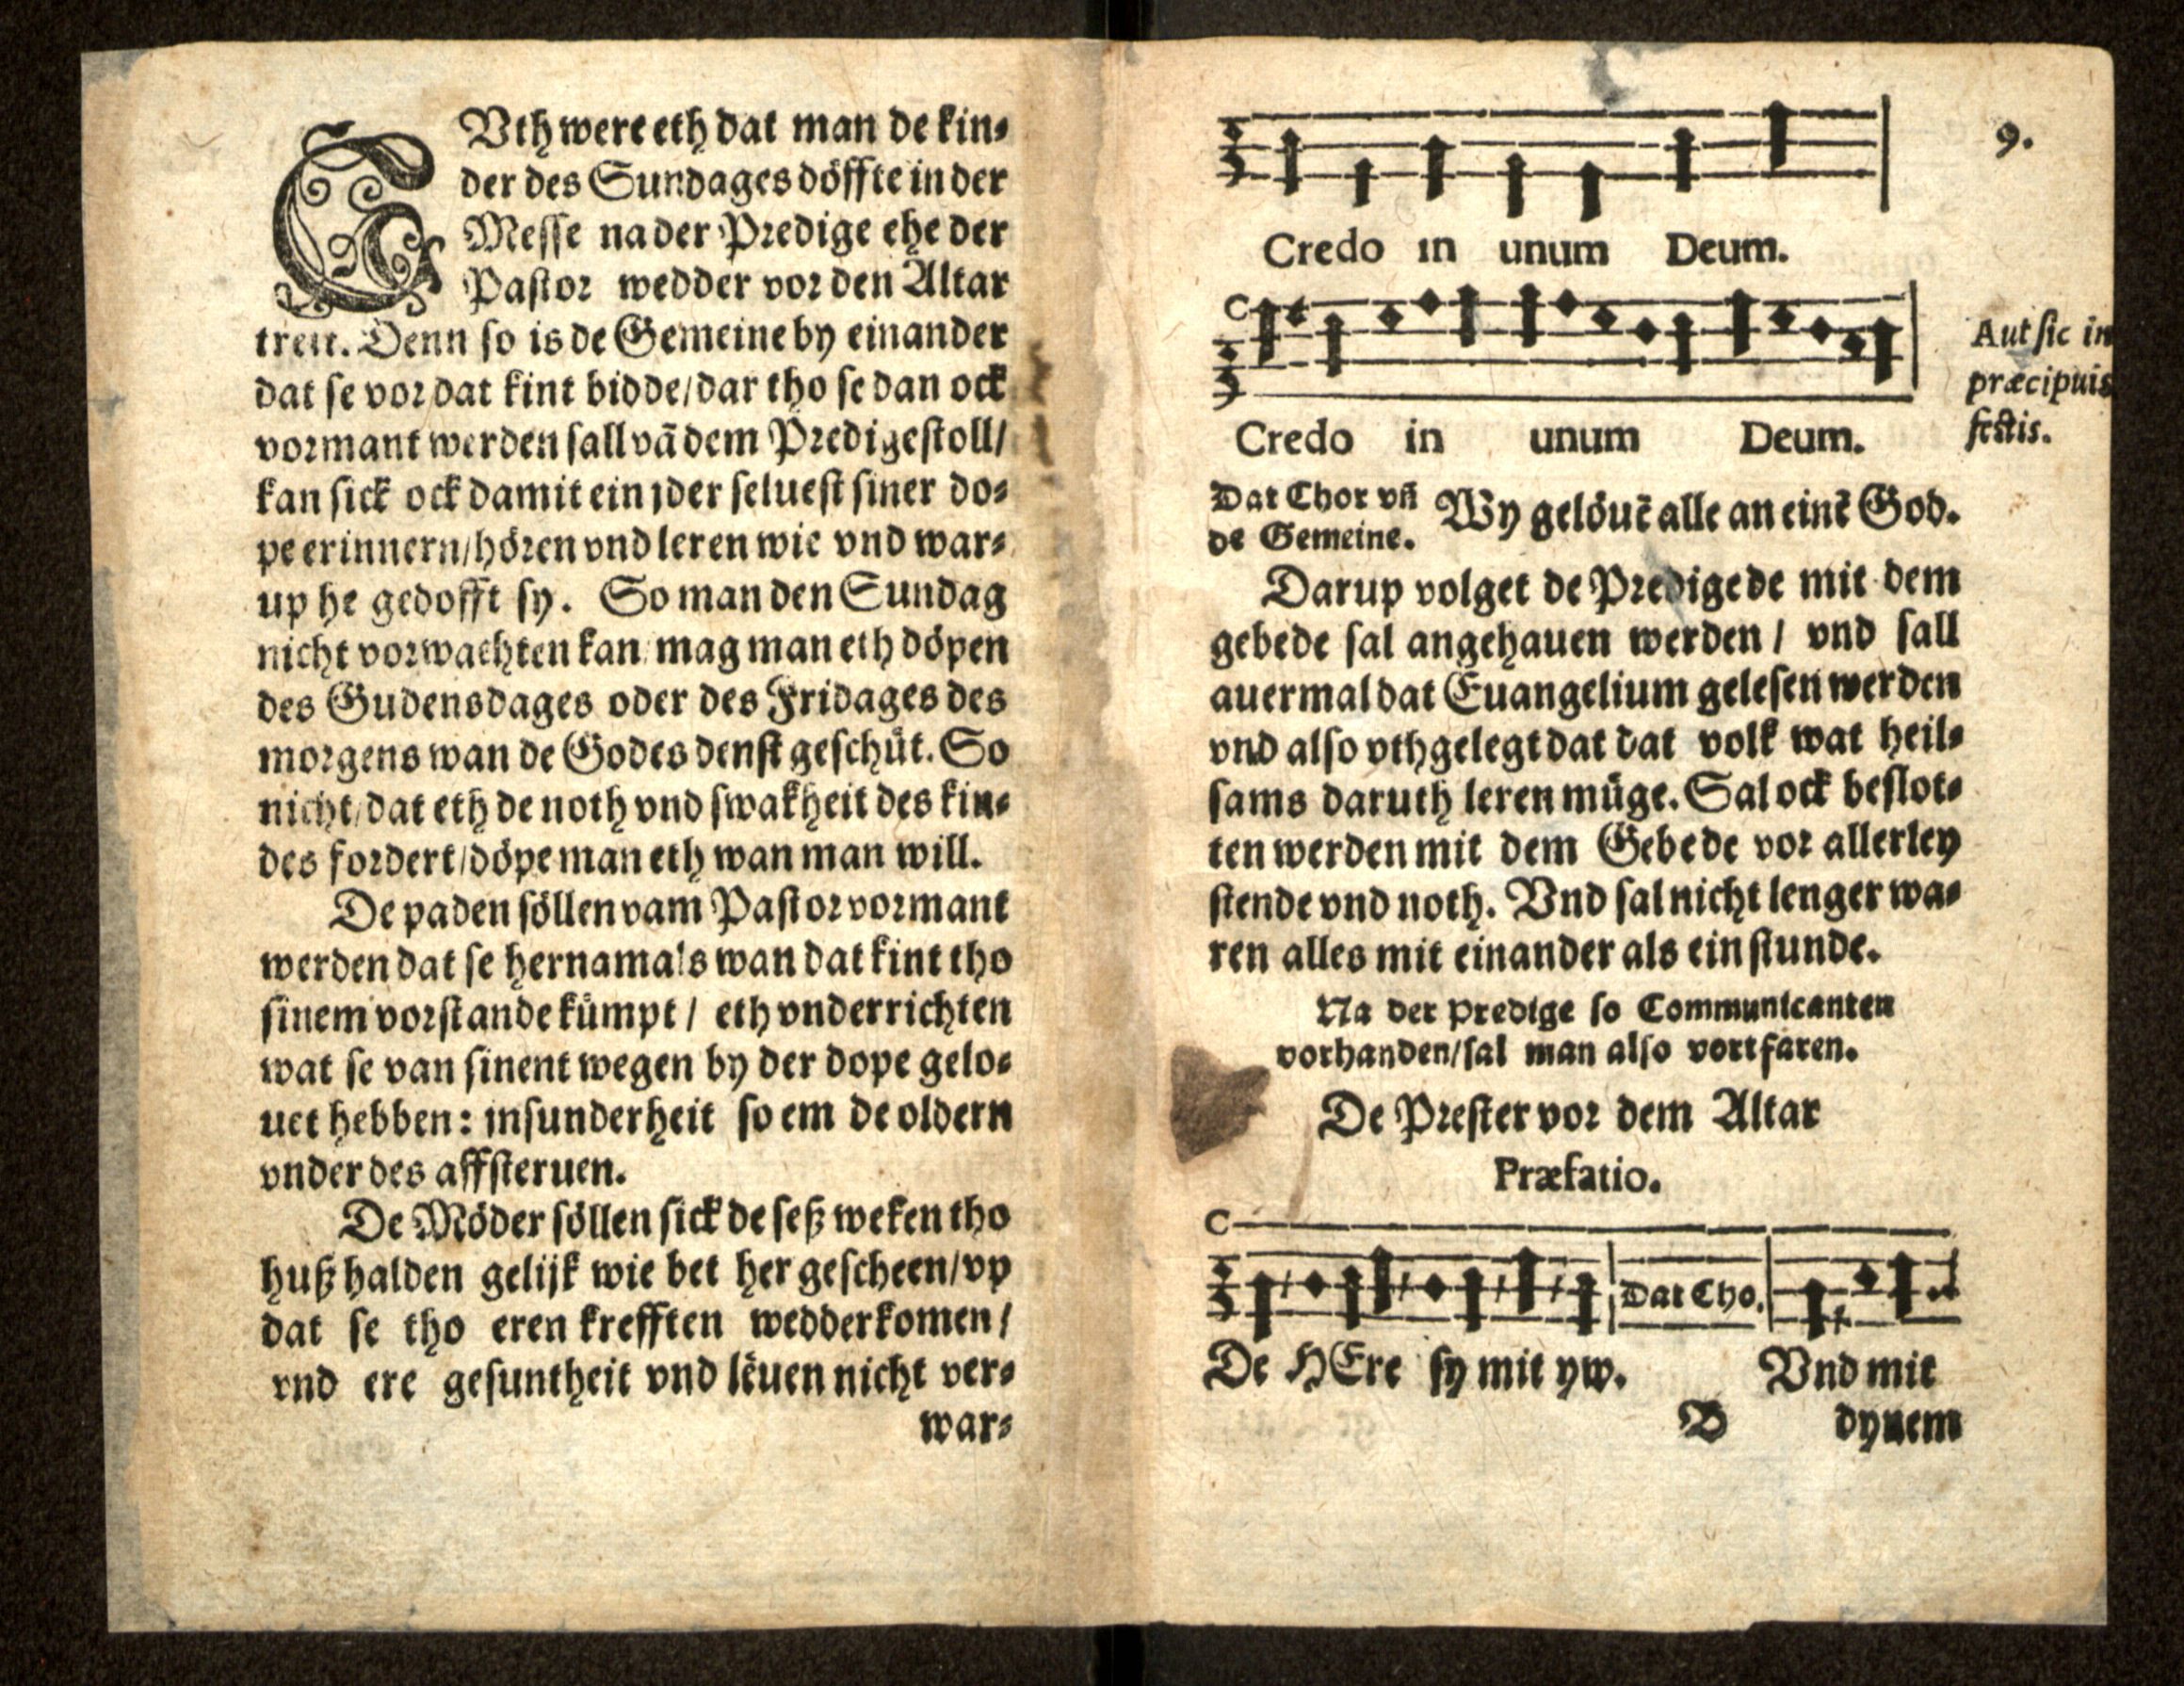 GVth were eth dat man de kin⸗
der des Sundages döffte in der
Messe na der Predige ehe der
Pastor wedder vor den Altar
trett. Denn so is de Gemeine by einander
dat se vor dat kint bidde/dar tho se dan ock
vormant werden sall vā dem Predigestoll/
kan sick ock damit ein jder seluest siner do⸗
pe erinnern/hören vnd leren wie vnd war⸗
up he gedofft sy. So man den Sundag
nicht vorwachten kan/mag man eth döpen
des Gudensdages oder des Fridages des
morgens wan de Godes denst geschüt. So
nicht/dat eth de noth vnd swakheit des kin⸗
des fordert/döpe man eth wan man will.
De paden söllen vam Pastor vormant
werden dat se hernamals wan dat kint tho
sinem vorstande kümpt/ eth vnderrichten
wat se van sinent wegen by der dope gelo⸗
uet hebben: insunderheit so em de oldern
vnder des affsteruen.
De Möder söllen sick de seß weken tho
huß halden gelijk wie bet her gescheen/vp
dat se tho eren krefften wedderkomen/
vnd ere gesuntheit vnd lëuen nicht ver⸗
war⸗
9.
Credo in unum Deum.
Aut sic in
præcipuis
festis.
Credo in unum Deum.
Dat Chor vñ
de Gemeine. Wy gelöuē alle an einē God.
Darup volget de Predige de mit dem
gebede sal angehauen werden/ vnd sall
auermal dat Euangelium gelesen werden
vnd also vthgelegt dat dat volk wat heil⸗
sams daruth leren müge. Sal ock beslot⸗
ten werden mit dem Gebede vor allerley
stende vnd noth. Vnd sal nicht lenger wa⸗
ren alles mit einander als ein stunde.
Na der Predige so Communicanten
vorhanden/sal man also vortfaren.
De Prester vor dem Altar
Præfatio.
Dat Cho.
De HEre sy mit yw. Vnd mit
B dynem